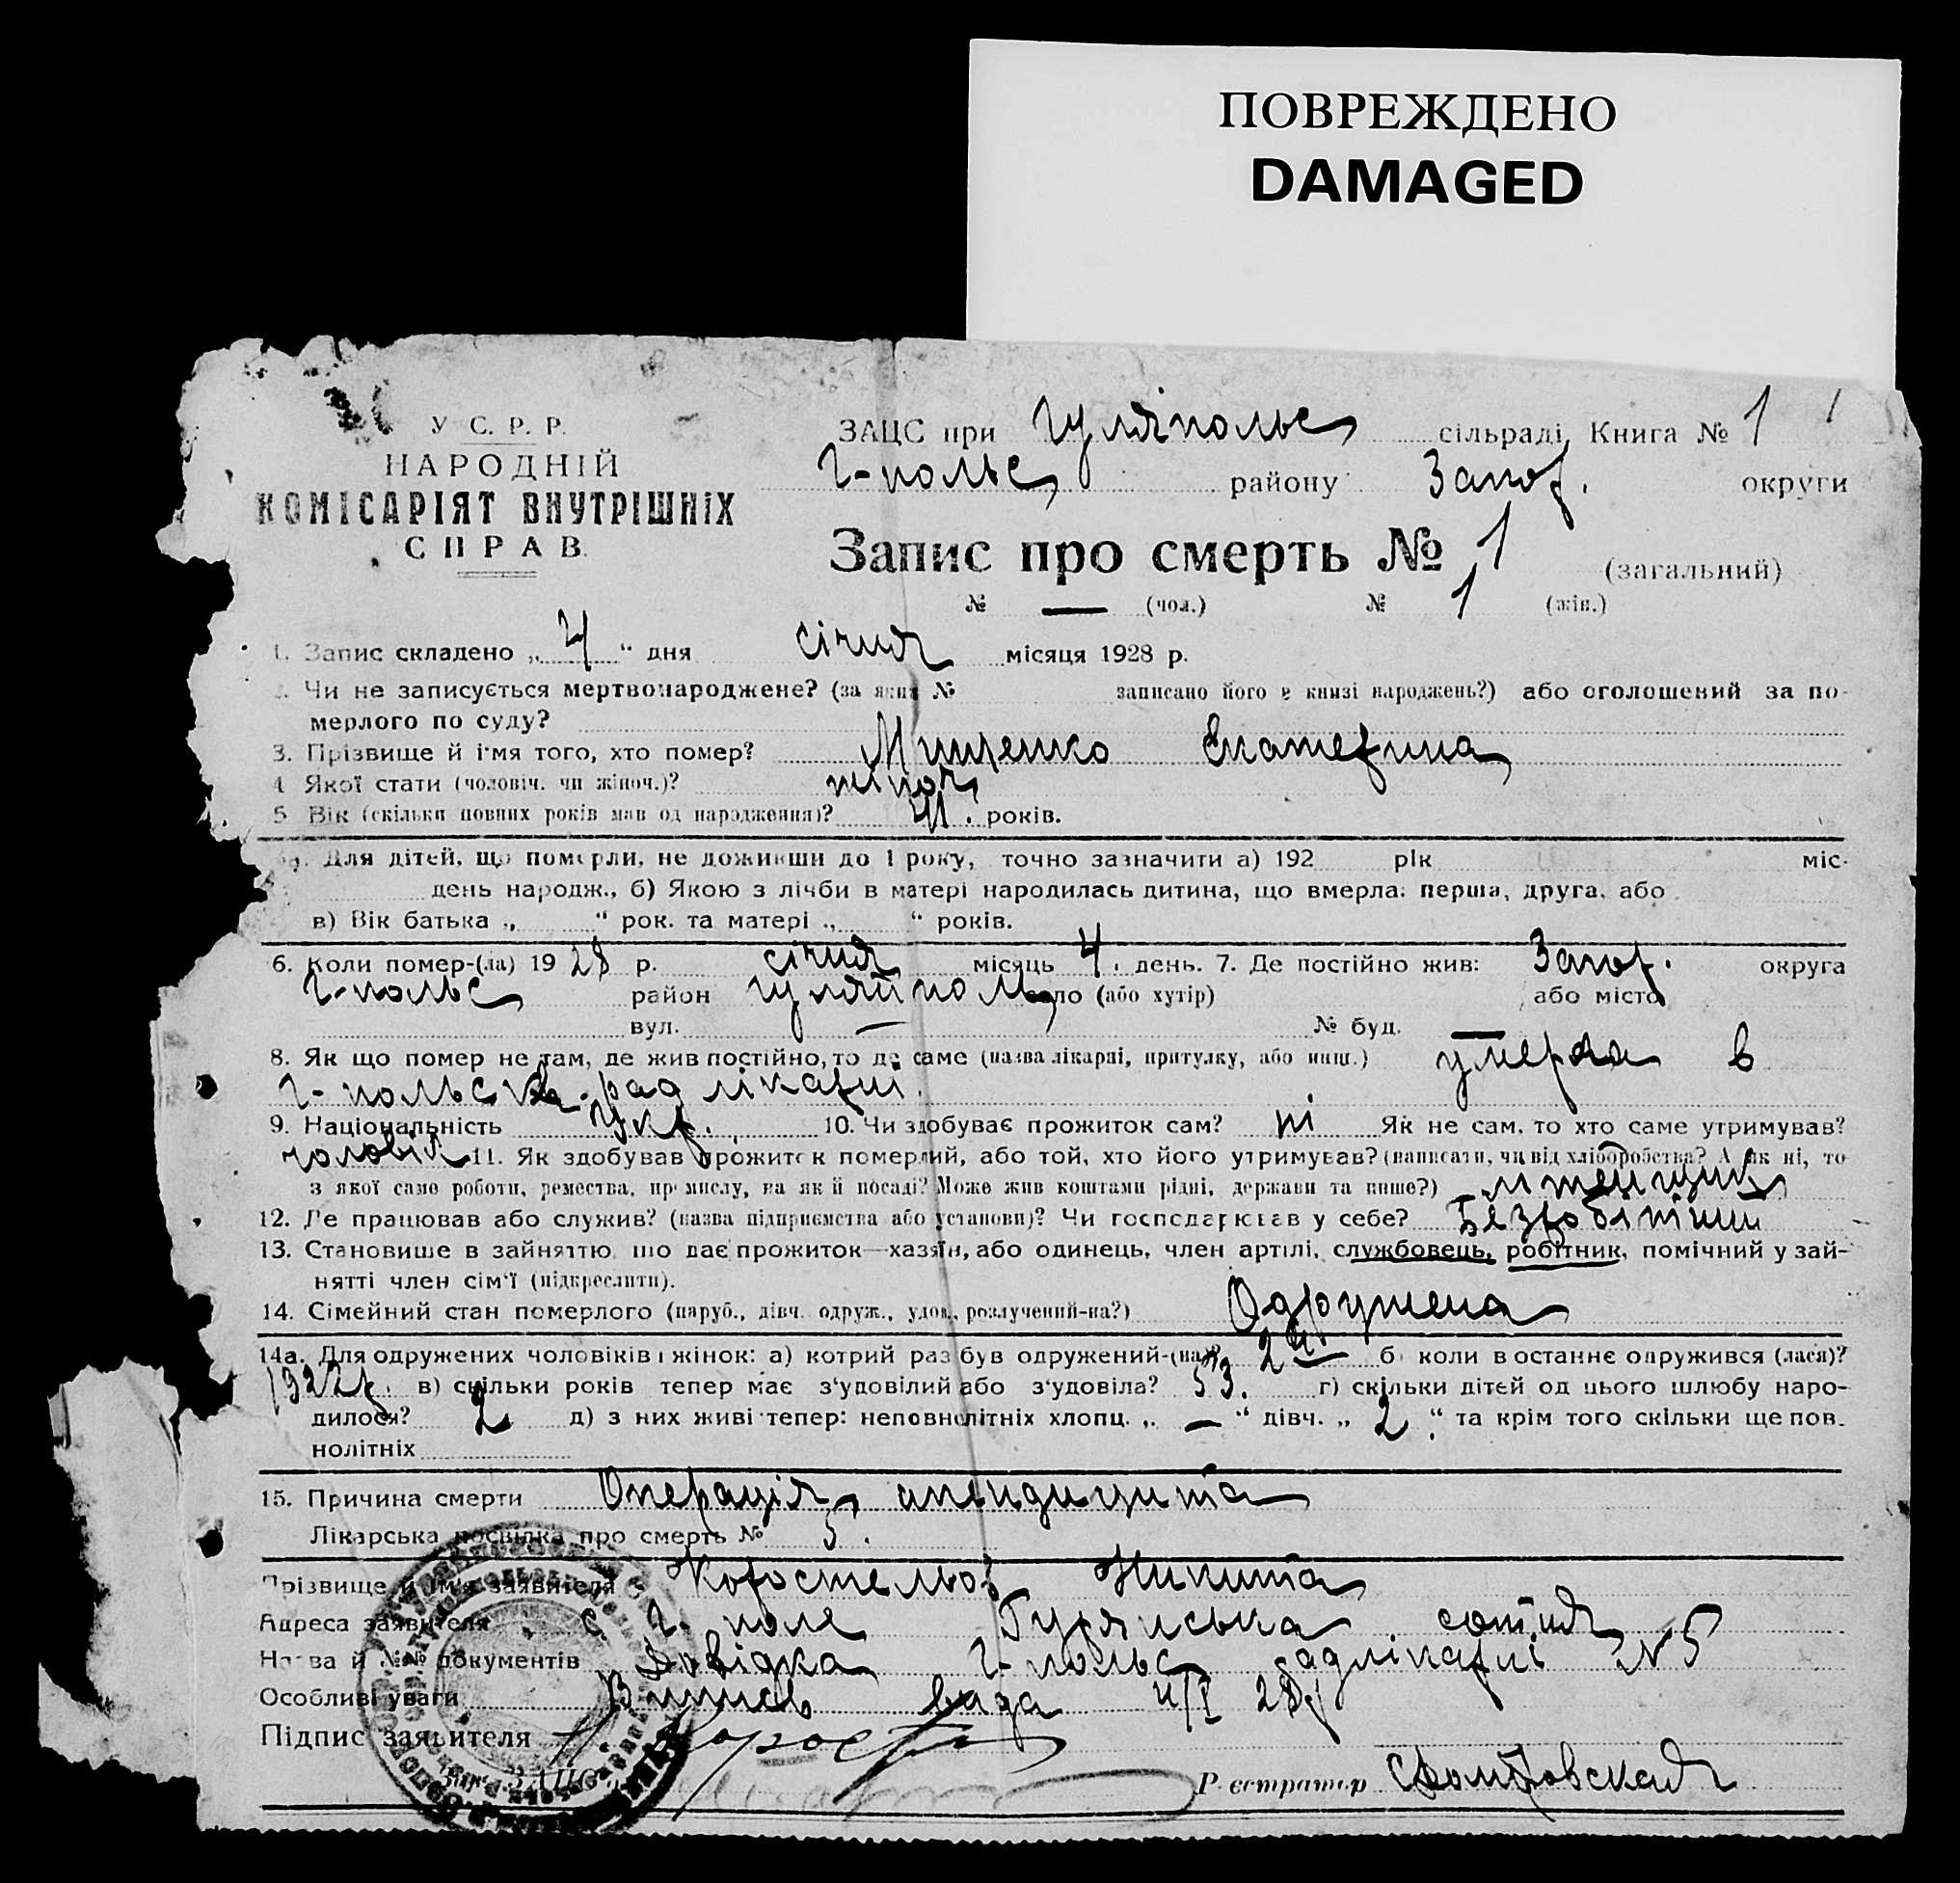 ПОВРЕЖДЕНО
DAMAGED
У С. Р. Р.
НАРОДНІЙ
КОМІСАРІЯТ ВНУТРІШНІХ
СПРАВ.
ЗАЦС при Гуляйпольс сільраді Книга № 1
Г-польс району Запор. округи
Запис про смерть № 1 (загальний)
№ — (чол.) № 1 (жін.)
1. Запис складено „ 4 “ дня січня місяця 1928 р.
2. Чи не записується мертвонароджене? (за яким № записано його в книзі народжень?) або оголошений за по-
мерлого по суду?
3. Прізвище й ім'я того, хто помер? Екатерина
4 Якої стати (чоловіч. чи жіноч.)? жіноч.
5 Вік (скільки повних років мав од народження)? 41. років.
Для дітей, що померли, не доживши до 1 року, точно зазначити а) 192 рік міс.
день народж., б) Якою з лічби в матері народилась дитина, що вмерла: перша, друга, або
в) Вік батька „ “ рок. та матері „ “ років.
6. Коли помер-(ла) 1928 р. січня місяць 4. день. 7. Де постійно жив: Запор. округа
Г-польс район Гуляйполе село (або хутір) або місто
вул. — № буд. —
8. Як що помер не там, де жив постійно, то де саме (назва лікарні, притулку, або инш.) умерла в
Г-польск. рад лікарні.
9. Національність Укр. 10. Чи здобуває прожиток сам? ні Як не сам, то хто саме утримував?
чоловік 11. Як здобував прожиток померлий, або той, хто його утримував? (написати, чи від хліборобства? А як ні, то
з якої саме роботи, ремества, промислу, на якій посаді? Може жив коштами рідні, держави та инше?)
12. Де працював або служив? (назва підприємства або установи)? Чи господарював у себе? Безробітний
13. Становише в зайняттю, що дає прожиток—хазяїн, або одинець, член артілі, службовець, робітник, помічний у зай-
нятті член сім'ї (підкреслити).
14. Сімейний стан померлого (паруб., дівч. одруж., удов., розлучений-на?) Одружена
14а. Для одружених чоловіків і жінок: а) котрий раз був одружений-(на)? 2й б) коли в останнє одружився (лася)?
1922р. в) скільки років тепер має з'удовілий або з'удовіла? 53. г) скільки дітей од цього шлюбу наро-
дилося? 2 д) з них живі тепер: неповнолітніх хлопц. „ — “ дівч. „ 2. “ та крім того скільки ще пов-
нолітніх
15. Причина смерти Операція апендицита
Лікарська посвідка про смерть № 5.
Прізвище й ім'я заявителя Коростельов Никита
Адреса заявителя с. Г. поле сотня
Назва й №№ документів Довідка Г-польс радлікарні N5
Особливі уваги 4/I 28р
Підпис заявителя
Реєстратор